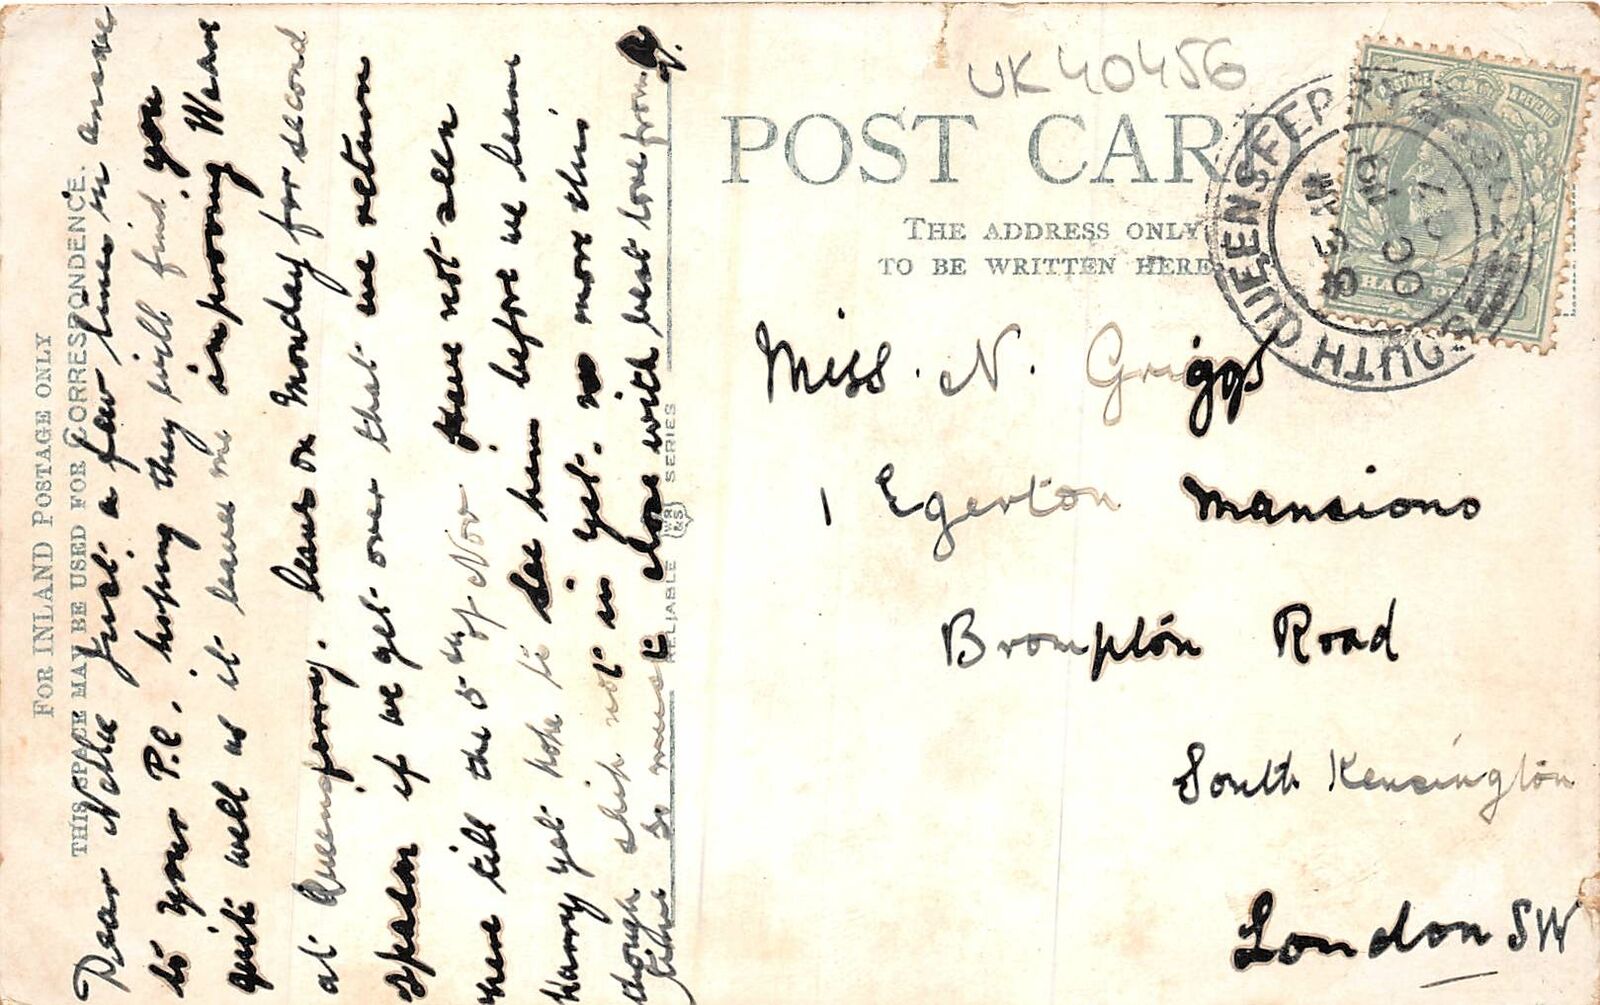 FOR INLAND POSTAGE ONLY
THIS SPACE MAY BE USED FOR CORRESPONDENCE.
Dear Nellie Just a few lines in answer
to your P.C. hoping they will find you
quite well as it leaves me improving Wean
at Queensferry. leave on Monday for second
spasm if we get over that we return
here till the 5th of Nov have not seen
Harry yet hope to see him before we leave
though ship not in yet. no more this
time so must close with best love from
G.
RELIABLE WR&S SERIES
UK40456
POST CARD
THE ADDRESS ONLY
TO BE WRITTEN HERE
SOUTH QUEENSFERRY
3 15 AM
OC 7
HALF
POSTAGE & REVENUE
Miss. N. Griggs
1 Egerton Mansions
Brompton Road
South Kensington
London SW